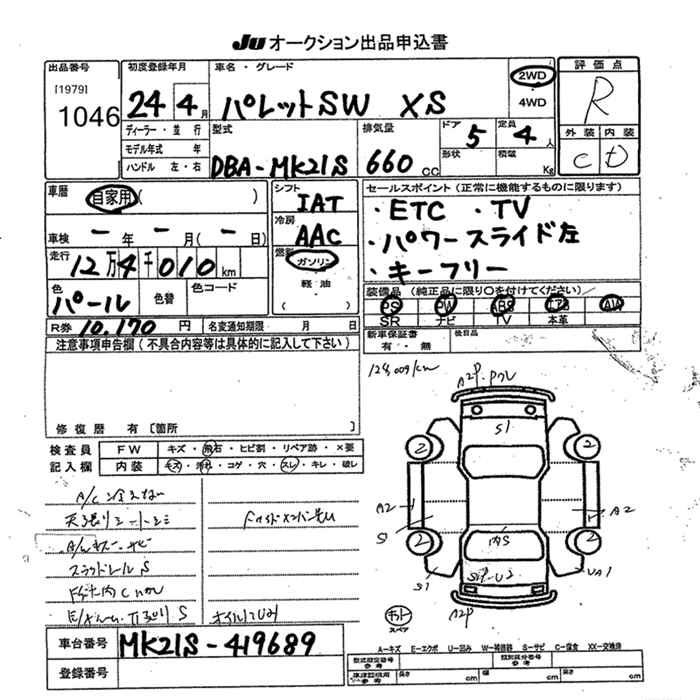 Ju オークション出品申込書
出品番号
[1979]
1046
初度登録年月
24年4月
車名・グレード
パレットSW XS
2WD
4WD
評価点
R
外装 内装
C D
ディーラー・並行
モデル年式 年
ハンドル 左・右
型式
DBA-MK21S
排気量
660cc
ドア 5
形状
定員 4人
積載 Kg
車歴 自家用( )
車検 ー年ー月(ー日)
走行 12万4千010km
色 パール
色替
色コード
R券 10,170円
名変通知期限 月 日
シフト
IAT
冷房
AAC
燃料
ガソリン
軽油
( )
セールスポイント(正常に機能するものに限ります)
・ETC ・TV
・パワースライド左
・キーフリー
装備品(純正品に限り○を付けてください)
PS PW ABS エアB AW
SR ナビ TV 本革
新車保証書
有・無
後日品
注意事項申告欄(不具合内容等は具体的に記入して下さい)
修復歴 有〔箇所 〕
検査員
記入欄
FW キズ・飛石・ヒビ割・リペア跡・×要
内装 キズ・汚れ・コゲ・穴・スレ・キレ・破レ
124,009km
A2P.
S1
2 2
A2 A2
S1
2 2
S1
UA1
A2P
スペア
A/C冷えない
天張りシートシミ
スライドレールS
オイルにじみ
車台番号 MK21S-419689
登録番号
A-キズ E-エクボ U-凹み W-補修跡 S-サビ C-腐食 XX-交換済
型式指定番号
参考
類別区分番号
参考
車庫証明用
参考
長さ cm 幅 cm 高さ cm